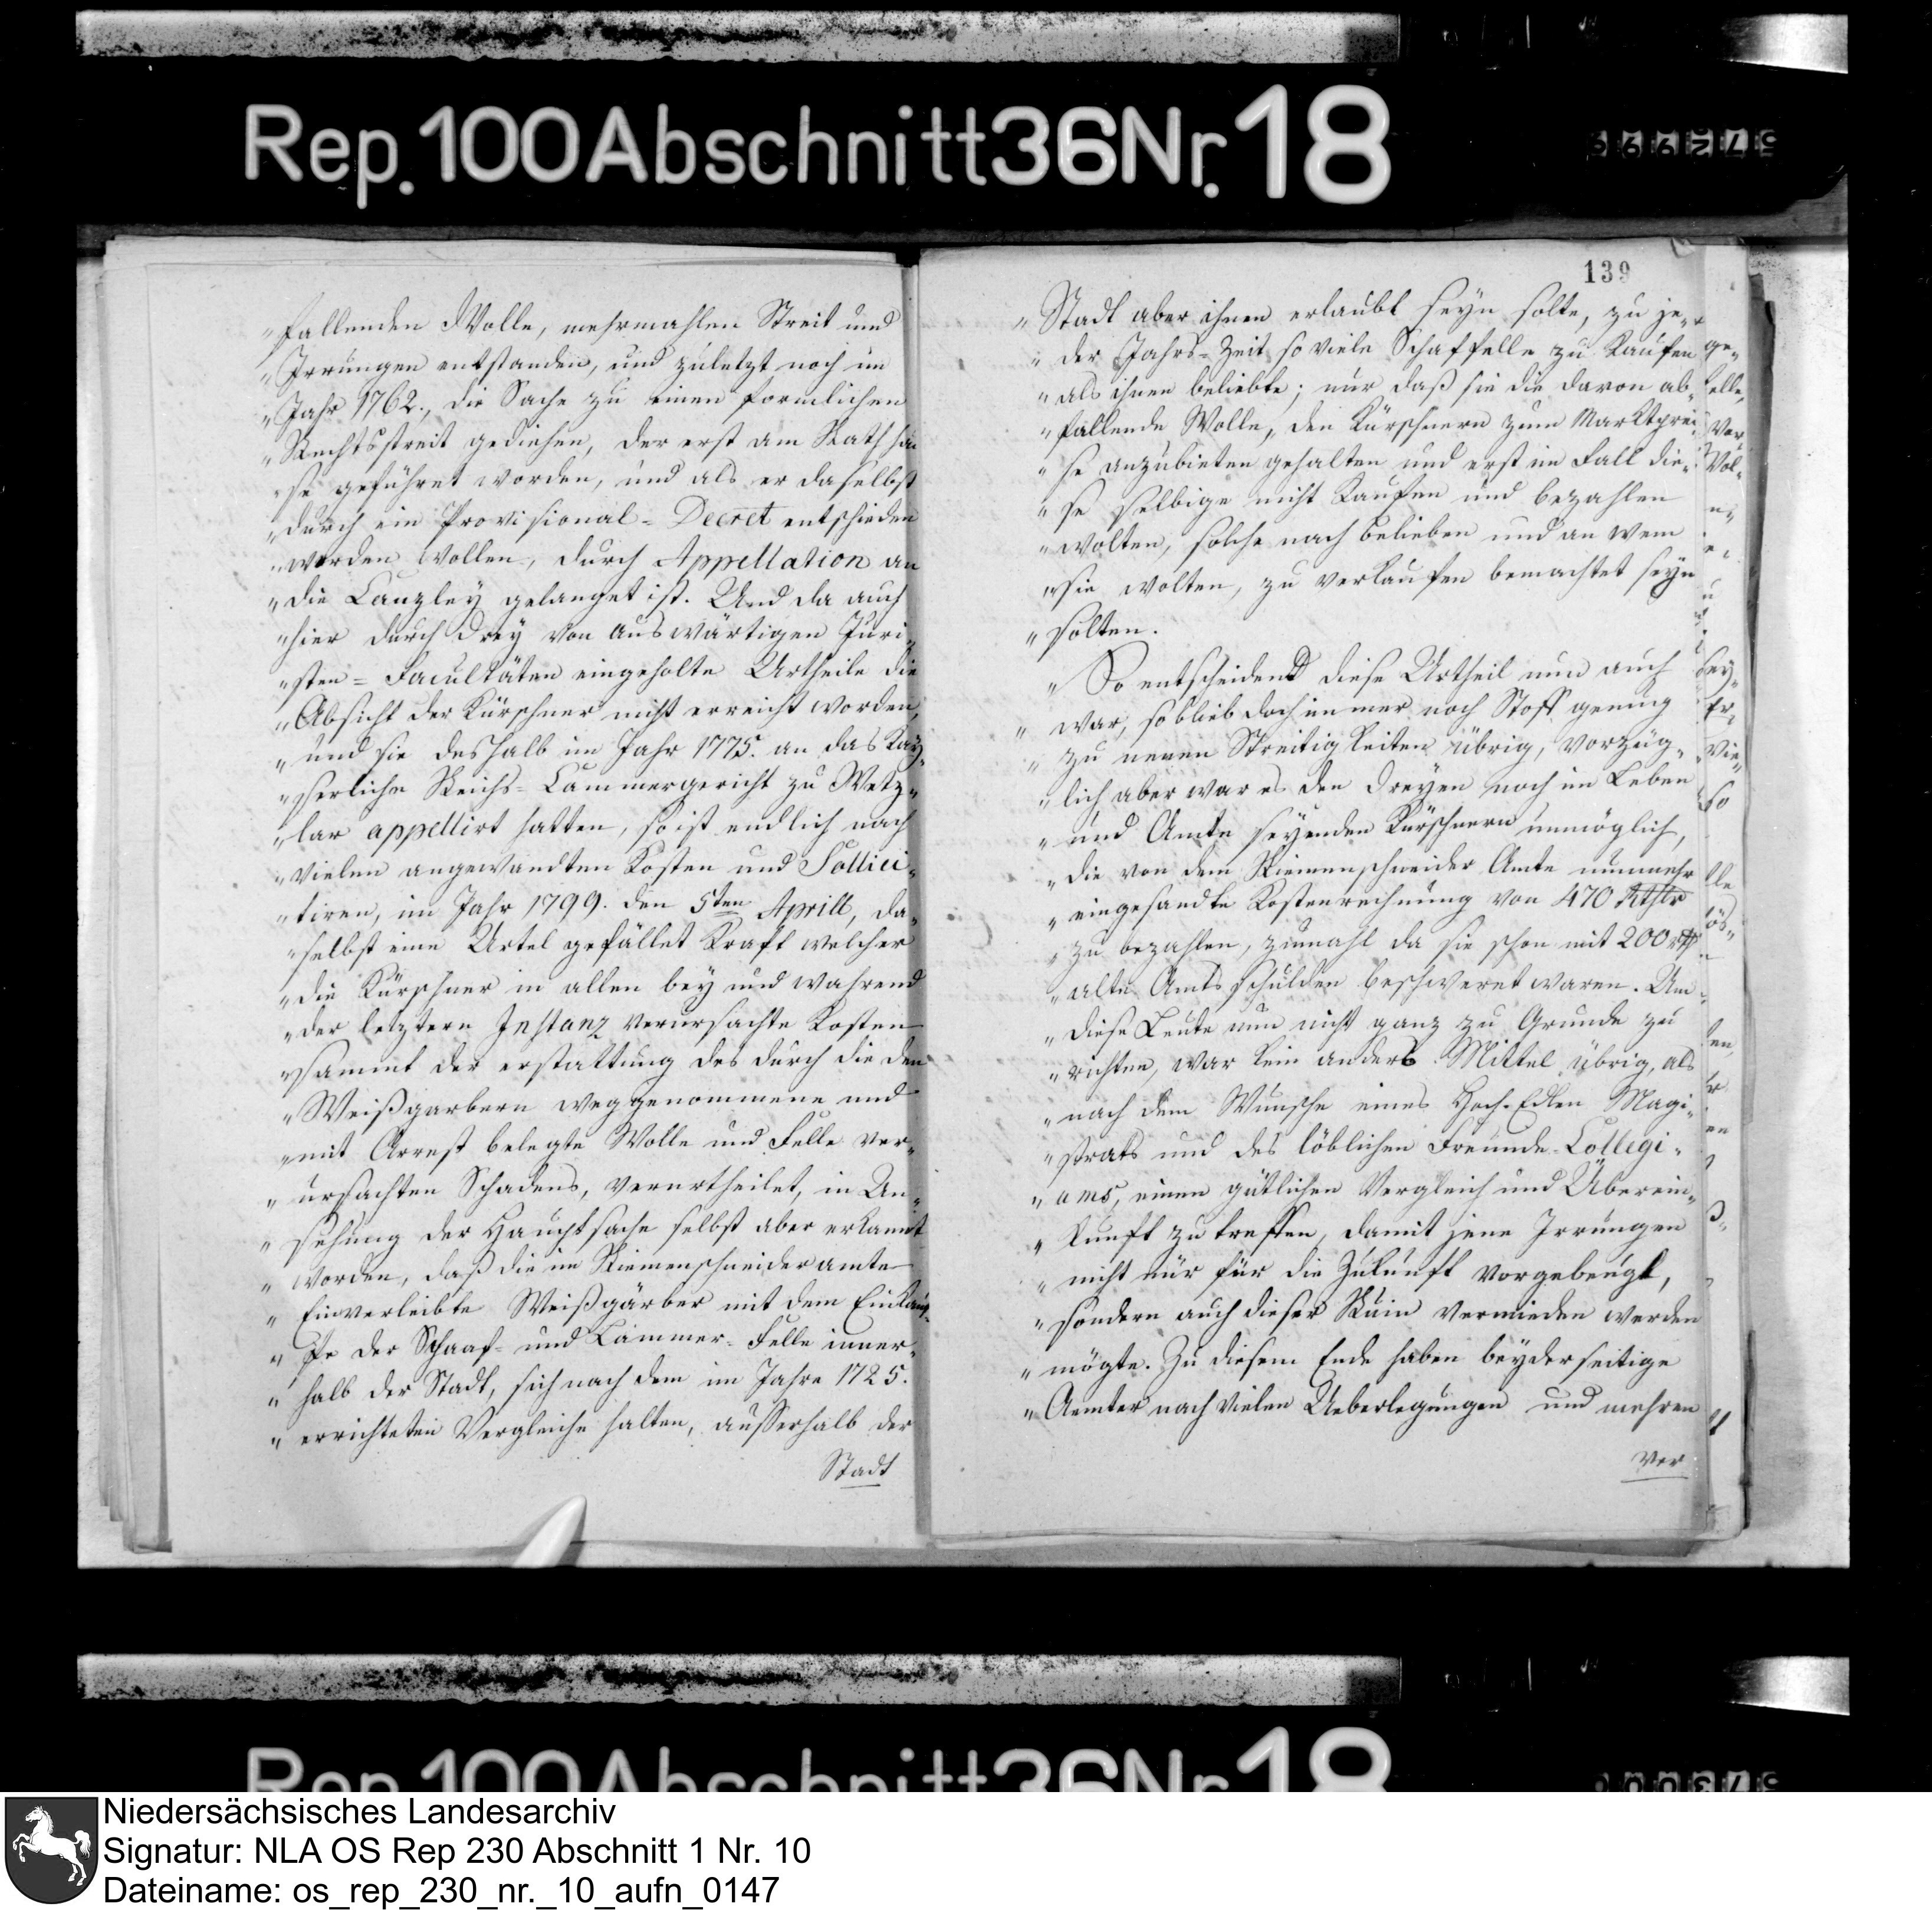 Rep. 100 Abschnitt 36 Nr. 18
„fallenden Wolle, mehrmahlen Streit und
„Irrungen entstanden, und zuletzt noch im
„Jahr 1762., die Sache zu einen formlichen
„Rechtsstreit gediehen, der erst am Rathhau
„se geführet worden, und als er daselbst
„durch ein Provisional=Decret entschieden
„werden wollen, durch Appellation an
„die Canzley gelanget ist. Und da auch
„hier durch drey von auswärtigen Juri„
„sten=Facultäten eingeholte Urtheile die
„Absicht der Kürschner nicht erreicht worden,
„und sie deshalb im Jahr 1775. an das Kay„
„serliche Reichs=Cammergericht zu Wetz„
„lar appellirt hatten, so ist endlich nach
„vielen angewandten Kosten und Sollici„
„tiren, im Jahr 1799. den 5ten Aprill, da„
„selbst eine Urtel gefället Kraft welcher
„die Kürschner in allen bey und wahrend
„der letztern Instanz verursachte Kosten
„sammt der erstattung des durch die den
„Weißgarbern weggenommene und
„mit Arrest belegte Wolle und Felle ver„
„ursachten Schadens, verurtheilet, in An„
„sehung der Hauptsache selbst aber erkannt
„worden, daß die im Riemenschneideramte
„Einverleibte Weißgärber mit dem Einkau„
„fe der Schaaf= und Lämmer=Felle inner„
„halb der Stadt, sich nach dem im Jahre 1725.
„errichteten Vergleiche halten, ausserhalb der
Stadt
139
„Stadt aber ihnen erlaubt seyn solte, zu je„
„der Jahrs=Zeit so viele Schaffelle zu Kaufen
„als ihnen beliebte; nur daß sie die davon ab„
„fallende Wolle, den Kürschnern zum Marktprei„
„se anzubieten gehalten und erst im Fall die„
„se selbige nicht Kaufen und bezahlen
„wolten, solche nach belieben und an wem
„sie wolten, zu verkaufen bemachtet seyn
„solten.
„So entscheidend diese Urtheil nun auch
„war, so blieb doch immer noch Stoff genug
„zu neuen Streitigkeiten übrig, vorzüg„
„lich aber war es den dreyen noch im Leben
„und Amte seyenden Kürschnern unmöglich,
„die von dem Riemenschneider Amte nunmehr
„eingesandte Kostenrechnung von 470 Rthlr
„zu bezahlen, zumahl da sie schon mit 200 rthl
„alte Amtsschulden beschweret waren. Um
„diese Leute nun nicht ganz zu Grunde zu
„richten, war kein anders Mittel übrig, als
„nach dem Wunsche eines Hoch=Edlen Magi„
„strats und des löblichen Freunde=Collegi„
„ams, einen gütlichen Vergleich und Überein„
„kunft zu treffen, damit jene Irrungen
„nicht nur für die Zukunft vorgebeugt,
„sondern auch dieser Ruin vermieden werden
„mögte. Zu diesem Ende haben beyderseitige
„Aemter nach vielen Ueberlegungen und mehren
ver
Niedersächsisches Landesarchiv
Signatur: NLA OS Rep 230 Abschnitt 1 Nr. 10
Dateiname: os_rep_230_nr._10_aufn_0147